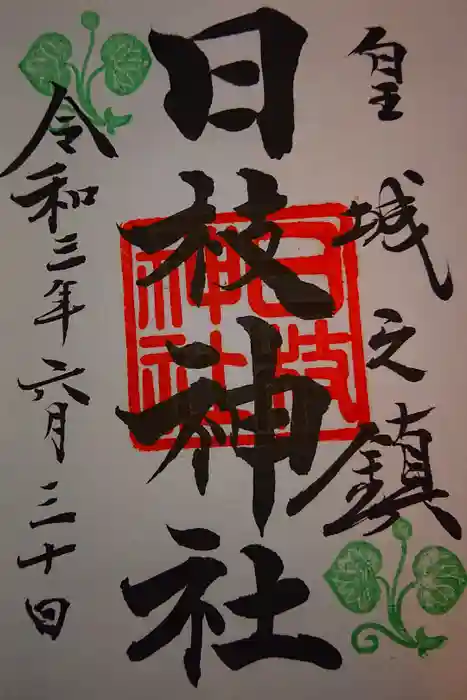 皇城之鎮
日枝神社
日枝
神社
令和三年六月三十日